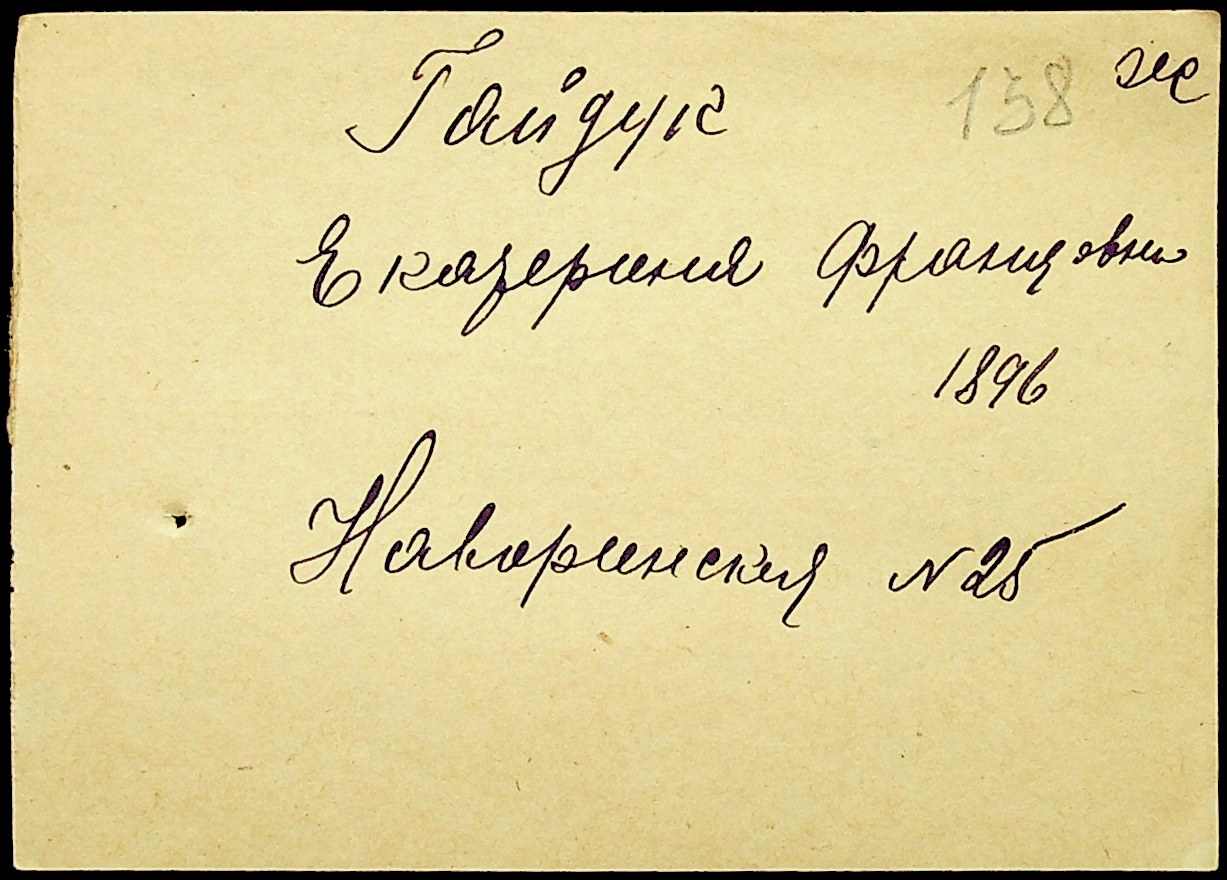 Гайдук 138 же
Екатерина Францовна
1896
Наваринская N 25